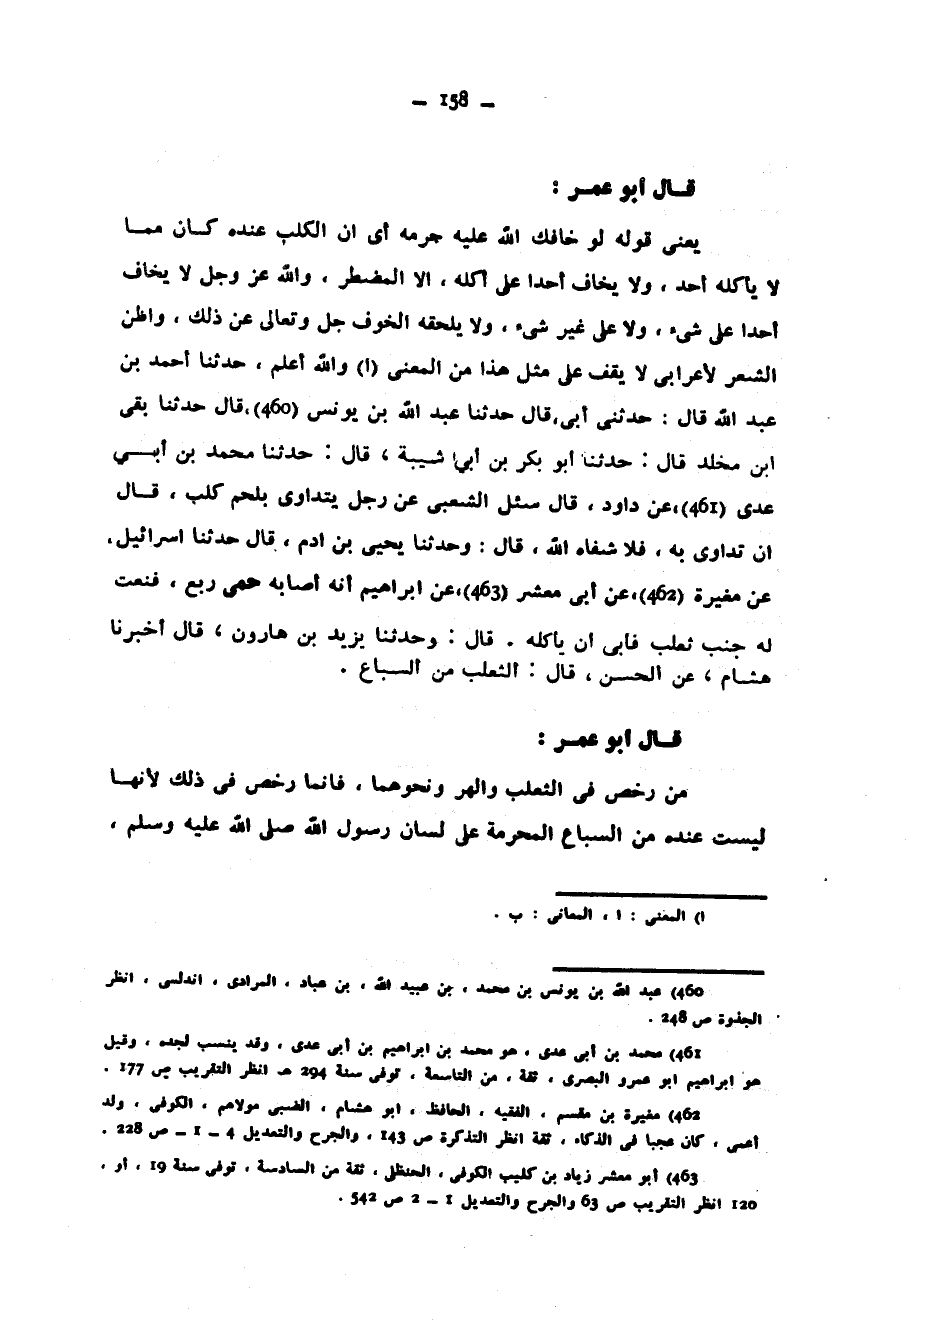 — 158 —
قــال أبو عمــر :
يعنى قوله لو خافك الله عليه حرمه أى ان الكلب عنده كــان ممــا
لا يأكله أحد ، ولا يخاف أحدا على أكله ، الا المضطر ، والله عز وجل لا يخاف
أحدا على شىء ، ولا على غير شىء ، ولا يلحقه الخوف جل وتعالى عن ذلك ، واظن
الشعر لأعرابى لا يقف على مثل هذا من المعنى (ا) والله أعلم ، حدثنا أحمد بن
عبد الله قال : حدثنى أبى،قال حدثنا عبد الله بن يونس (460)،قال حدثنا بقى
ابن مخلد قال : حدثنا أبو بكر بن أبى شيبة ، قال : حدثنا محمد بن أبــى
عدى (461)،عن داود ، قال سئل الشعبى عن رجل يتداوى بلحم كلب ، قــال
ان تداوى به ، فلا شفاه الله ، قال : وحدثنا يحيى بن ادم ، قال حدثنا اسرائيل،
عن مغيرة (462)،عن أبى معشر (463)،عن ابراهيم أنه أصابه حمى ربع ، فنعت
له جنب ثعلب فأبى أن يأكله . قال : وحدثنا يزيد بن هارون ، قال أخبرنا
هشــام ، عن الحســن ، قال : الثعلب من السبـاع .
قــال أبو عمــر :
من رخص فى الثعلب والهر ونحوهما ، فانما رخص فى ذلك لأنهــا
ليست عنده من السباع المحرمة على لسان رسول الله صلى الله عليه وسلم ،
ا) المعنى : ا ، المعانى : ب .
460) عبد الله بن يونس بن محمد ، بن عبيد الله ، بن عباد ، المرادى ، اندلسى ، انظر
الجذوة ص 248 .
461) محمد بن أبى عدى ، هو محمد بن ابراهيم بن أبى عدى ، وقد ينسب لجده ، وقيل
هو ابراهيم ابو عمرو البصرى ، ثقة ، من التاسعة ، توفى سنة 294 هـ انظر التقريب ص 177 .
462) مغيرة بن مقسم ، الفقيه ، الحافظ ، ابو هشام ، الضبى مولاهم ، الكوفى ، ولد
أعمى ، كان عجبا فى الذكاء ، ثقة انظر التذكرة ص 143 ، والجرح والتعديل 4 – 1 – ص 228 .
463) أبو معشر زياد بن كليب الكوفى ، الحنظلى ، ثقة من السادسة ، توفى سنة 19 ، أو ،
120 انظر التقريب ص 63 والجرح والتعديل 1 – 2 ص 542 .